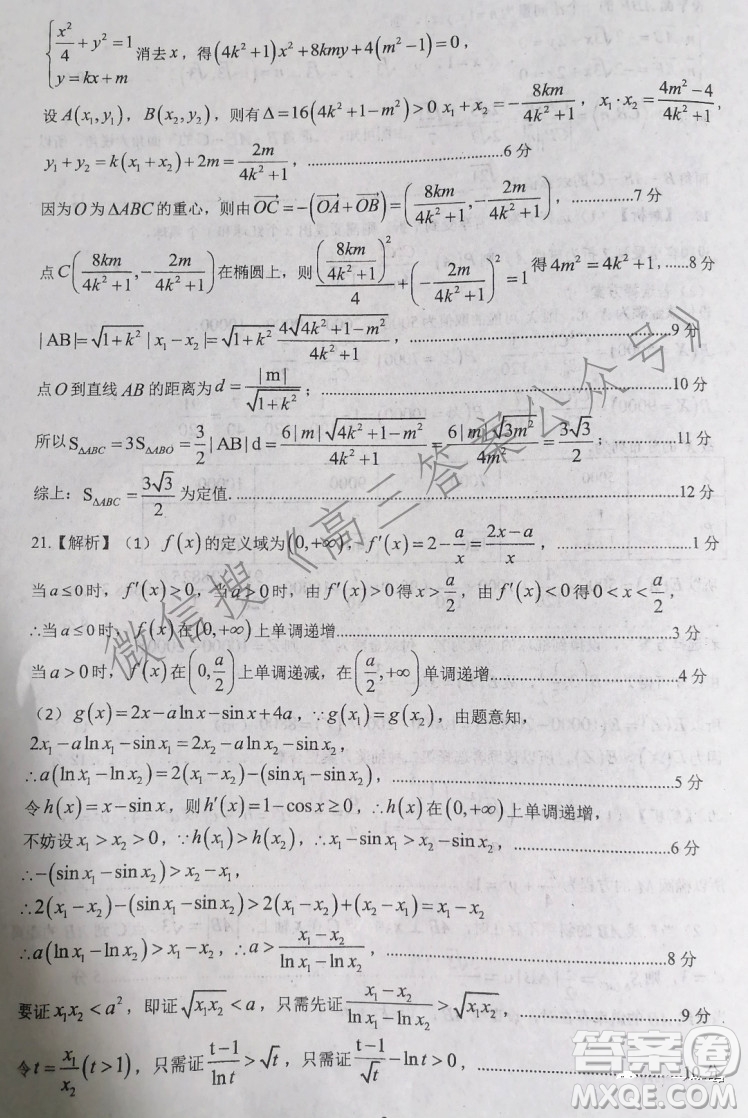 {x²/4 + y² = 1
y = kx + m 消去 x，得(4k²+1)x²+8kmy+4(m²−1)=0，
设 A(x₁,y₁)，B(x₂,y₂)，则有Δ=16(4k²+1−m²)>0 x₁+x₂=−8km/(4k²+1)，x₁·x₂=(4m²−4)/(4k²+1)，
y₁+y₂=k(x₁+x₂)+2m=2m/(4k²+1)，........................6分
因为O为ΔABC的重心，则由OC→=−(OA→+OB→)=(8km/(4k²+1),−2m/(4k²+1))，...............7分
点C(8km/(4k²+1),−2m/(4k²+1))在椭圆上，则有(8km/(4k²+1))²/4+(−2m/(4k²+1))²=1得4m²=4k²+1，......8分
|AB|=√(1+k²)|x₁−x₂|=√(1+k²)·4√(4k²+1−m²)/(4k²+1)，........................9分
点O到直线AB的距离为d=|m|/√(1+k²)；........................10分
所以S_ΔABC=3S_ΔABO=3/2|AB|d=6|m|√(4k²+1−m²)/(4k²+1)=6|m|√(3m²)/4m²=3√3/2；...............11分
综上：S_ΔABC=3√3/2为定值........................12分
21.【解析】（1）f(x)的定义域为(0,+∞)，f′(x)=2−a/x=(2x−a)/x，...............1分
当a≤0时，f′(x)>0，当a>0时，由f′(x)>0得x>a/2，由f′(x)<0得0<x<a/2，
∴当a≤0时，f(x)在(0,+∞)上单调递增........................3分
当a>0时，f(x)在(0,a/2)上单调递减，在(a/2,+∞)单调递增........................4分
（2）g(x)=2x−alnx−sinx+4a，∵g(x₁)=g(x₂)，由题意知，
2x₁−alnx₁−sinx₁=2x₂−alnx₂−sinx₂，
∴a(lnx₁−lnx₂)=2(x₁−x₂)−(sinx₁−sinx₂)，........................5分
令h(x)=x−sinx，则h′(x)=1−cosx≥0，∴h(x)在(0,+∞)上单调递增，
不妨设x₁>x₂>0，∵h(x₁)>h(x₂)，∴x₁−sinx₁>x₂−sinx₂，........................6分
∴−(sinx₁−sinx₂)>x₂−x₁，
∴2(x₁−x₂)−(sinx₁−sinx₂)>2(x₁−x₂)+(x₂−x₁)=x₁−x₂，
∴a(lnx₁−lnx₂)>x₁−x₂，∴a>(x₁−x₂)/(lnx₁−lnx₂)，........................8分
要证x₁x₂<a²，即证√(x₁x₂)<a，只需先证(x₁−x₂)/(lnx₁−lnx₂)>√(x₁x₂)，...............9分
令t=x₁/x₂(t>1)，只需证(t−1)/lnt>√t，只需证(t−1)/√t−lnt>0，........................10分
微信搜《高三答案公众号》
答案圈
MXQE.COM